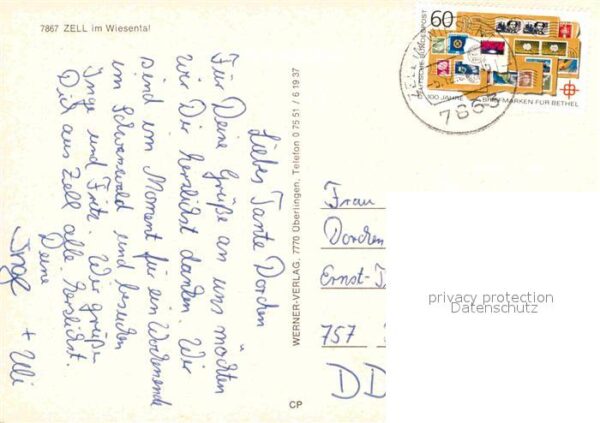 7867 ZELL im Wiesental
Liebes Tante Dorchen
Für Deine Grüße an uns möchten
wir Dir herzlichst danken. Wir
sind im Moment für ein Wochenende
im Schwarzwald und besuchen
Inge und Fritz. Wir grüßen
Dich aus Zell alle herzlichst.
Deine
Inge + Uli
WERNER-VERLAG, 7770 Überlingen, Telefon 0 75 51 / 6 19 37
CP
60
DEUTSCHE BUNDESPOST
100 JAHRE BRIEFMARKEN FÜR BETHEL
ZELL
Frau
Dorchen
Ernst-T
757
DD
privacy protection
Datenschutz